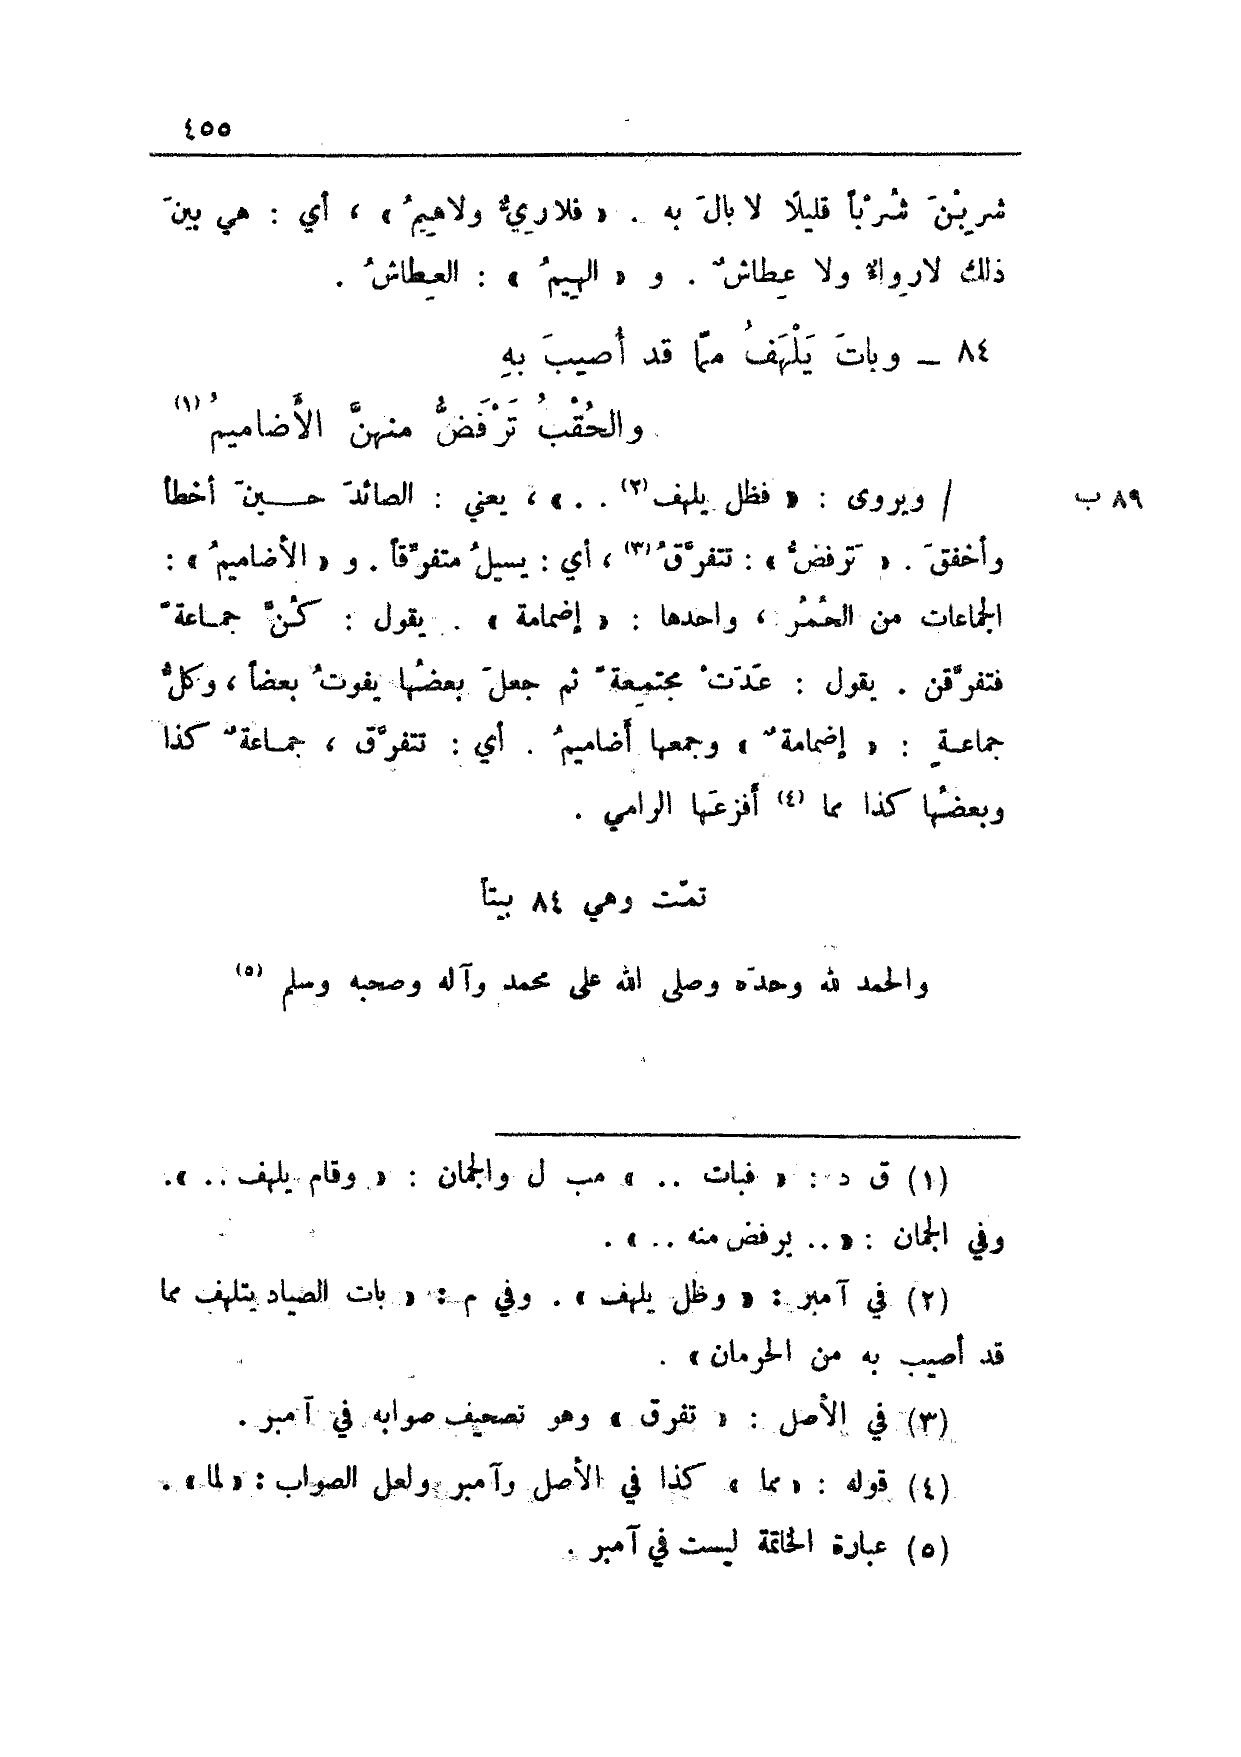 ٤٥٥
شربْنَ شُرْباً قليلًا لا بالَ به . « فلا ريٌّ ولا هيمُ » ، أي : هي بينَ
ذلك لا رواءٌ ولا عِطاشٌ . و « الهِيمُ » : العِطاشُ .
٨٤ ــ وباتَ يَلْهَفُ ممّا قد أُصيبَ بهِ
والحُقْبُ تَرْفَضُّ منهنَّ الأَضاميمُ (١)
٨٩ ب / ويروى : « فظل يلهف (٢) . . » ، يعني : الصائدَ حـــينَ أخطأ
وأخفقَ . « تَرفضُّ » : تتفرَّقُ (٣) ، أي : يسيلُ متفرِّقاً . و « الأضاميمُ » :
الجماعات من الحُمُر ، واحدها : « إضمامة » . يقول : كُنَّ جمـاعةً
فتفرَّقن . يقول : عَدَتْ مجتمِعةً ثم جعلَ بعضُها يفوتُ بعضاً ، وكلُّ
جماعـةٍ : « إضمامةٌ » وجمعها أَضاميمُ . أي : تتفرَّق ، جمـاعةٌ كذا
وبعضُها كذا مما (٤) أفزعَها الرامي .
تمّت وهي ٨٤ بيتاً
والحمد لله وحدَه وصلى الله على محمد وآله وصحبه وسلم (٥)
(١) ق د : « فبات .. » مب ل والجمان : « وقام يلهف .. ».
وفي الجمان : « .. يرفض منه .. » .
(٢) في آمبر : « وظل يلهف » . وفي م : « بات الصياد يتلهف مما
قد أصيب به من الحرمان » .
(٣) في الأصل : « تفرق » وهو تصحيف صوابه في آمبر .
(٤) قوله : « مما » كذا في الأصل وآمبر ولعل الصواب : « لما » .
(٥) عبارة الخاتمة ليست في آمبر .